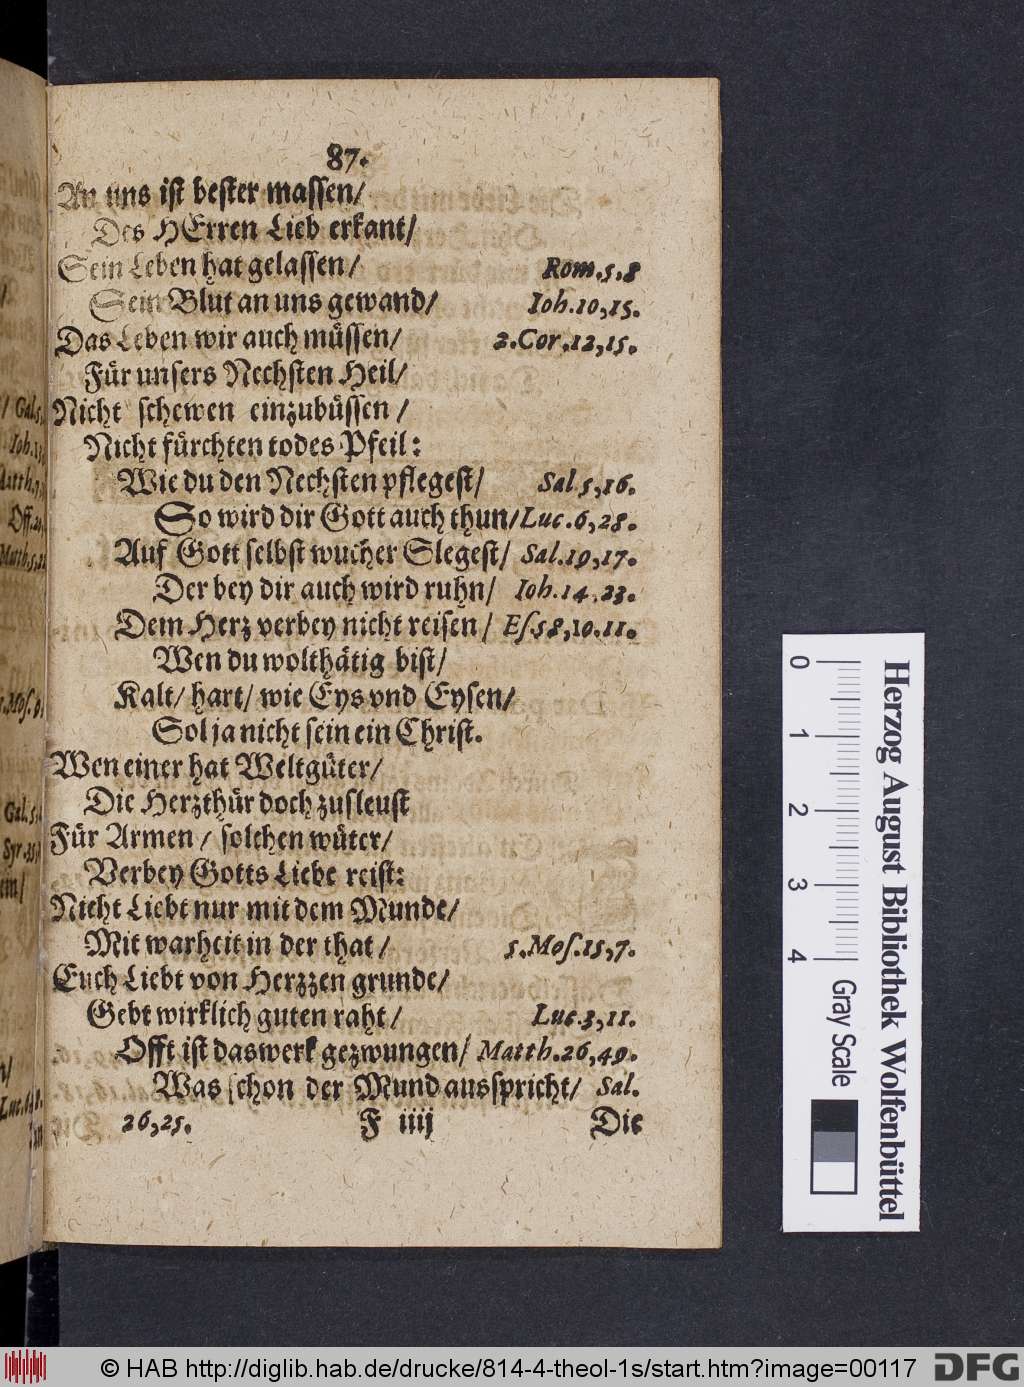 87.
An uns ist bester massen/
Des HErren Lieb erkant/
Sein Leben hat gelassen/ Rom.5.8
Sein Blut an uns gewand/ Ioh.10,15.
Das Leben wir auch müssen/ 2.Cor.12,15.
Für unsers Nechsten Heil/
Nicht schewen einzubüssen /
Nicht fürchten todes Pfeil:
Wie du den Nechsten pflegest/ Sal 5,16.
So wird dir Gott auch thun/Luc.6,28.
Auf Gott selbst wucher Slegest/ Sal.19,17.
Der bey dir auch wird ruhn/ Ioh.14.23.
Dem Herz verbey nicht reisen / Es58,10.11.
Wen du wolthätig bist/
Kalt/ hart/ wie Eys vnd Eysen/
Sol ja nicht sein ein Christ.
Wen einer hat Weltgüter/
Die Herzthür doch zusleust
Für Armen / solchen wüter/
Verbey Gotts Liebe reist:
Nicht Liebt nur mit dem Munde/
Mit warheit in der that / 5.Mos.15,7.
Euch Liebt von Herzzen grunde/
Gebt wirklich guten raht / Luc.3,11.
Offt ist das werk gezwungen/ Matth.26,49.
Was schon der Mund ausspricht/ Sal.
26,25. F iiij Die
Gal.5,
Ioh.13,
Off.21,
Matth.5,
.Mos.9.
Gal.5,
Syr.35,
ein/
Luc.6,
Herzog August Bibliothek Wolfenbüttel
0 1 2 3 4 Gray Scale
© HAB http://diglib.hab.de/drucke/814-4-theol-1s/start.htm?image=00117 DFG